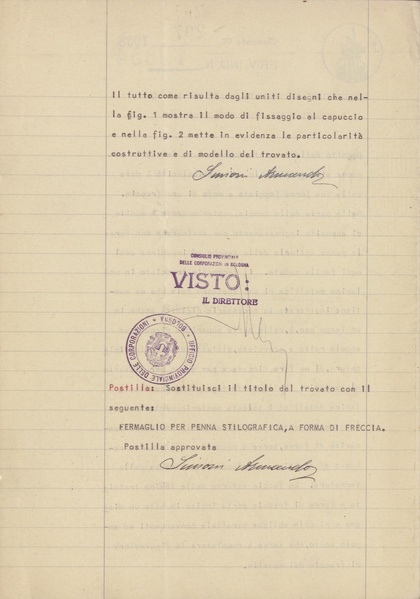 Il tutto come risulta dagli uniti disegni che nel-
la fig. 1 mostra il modo di fissaggio al capuccio
e nella fig. 2 mette in evidenza le particolarità
costruttive e di modello del trovato.
Simoni Armando
CONSIGLIO PROVINCIALE
DELLE CORPORAZIONI IN BOLOGNA
VISTO:
IL DIRETTORE
UFFICIO PROVINCIALE DELLE CORPORAZIONI - BOLOGNA
Postilla: Sostituisci il titolo del trovato con il
seguente:
FERMAGLIO PER PENNA STILOGRAFICA,A FORMA DI FRECCIA.
Postilla approvata
Simoni Armando